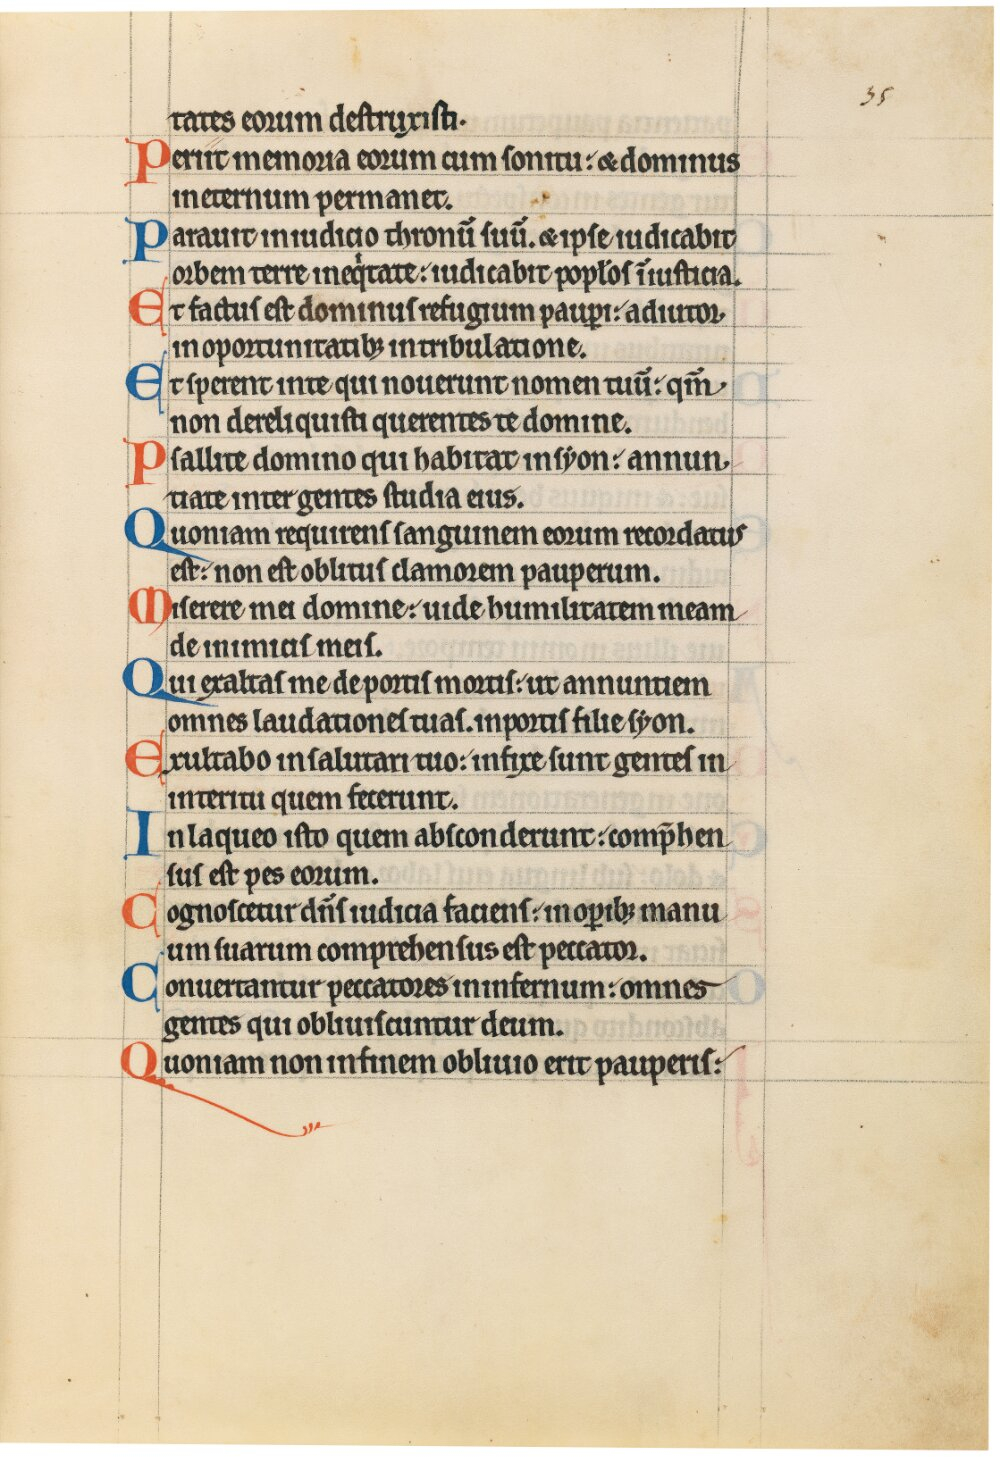 35
tates eorum destruxisti.
Periit memoria eorum cum sonitu: & dominus
in eternum permanet.
Parauit in iudicio thronū suū. & ipse iudicabit
orbem terre in eq̇tate: iudicabit popl̄os ī iusticia.
Et factus est dominus refugium paup̲i: adiutor
in oportunitatibꝫ in tribulatione.
Et sperent in te qui nouerunt nomen tuū: qm̄
non dereliquisti querentes te domine.
Psallite domino qui habitat in sẏon: annun
tiate inter gentes studia eius.
Quoniam requirens sanguinem eorum recordatus
est: non est oblitus clamorem pauperum.
Miserere mei domine: uide humilitatem meam
de inimicis meis.
Qui exaltas me de portis mortis: ut annuntiem
omnes laudationes tuas. in portis filie syon.
Exultabo in salutari tuo: infixe sunt gentes in
interitu quem fecerunt.
In laqueo isto quem absconderunt: comp̄hen
sus est pes eorum.
Cognoscetur dn̄s iudicia faciens: in op̲ibꝫ manu
um suarum comprehensus est peccator.
Conuertantur peccatores in infernum: omnes
gentes qui obliuiscuntur deum.
Quoniam non in finem obliuio erit pauperis: